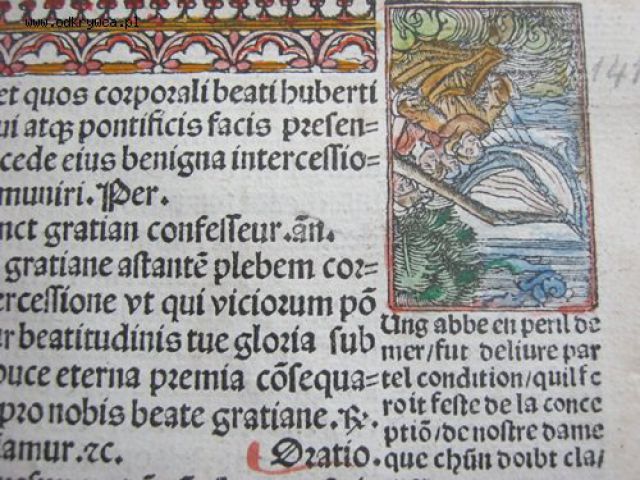 www.odkrywca.pl
et quos corporali beati huberti
ui atqꝫ pontificis facis presen=
cede eius benigna intercessio=
muniri. Per.
nct gratian confesseur. an̄.
gratiane astantē plebem cor=
ercessione vt qui viciorum pō
ur beatitudinis tue gloria sub
duce eterna premia cōsequa=
pro nobis beate gratiane. ℟.
famur. ⁊c.
Oratio.
141
Ung abbe en peril de
mer/fut deliure par
tel condition/quil fe
roit feste de la conce
ptiō/de nostre dame
que chūn doibt cla/